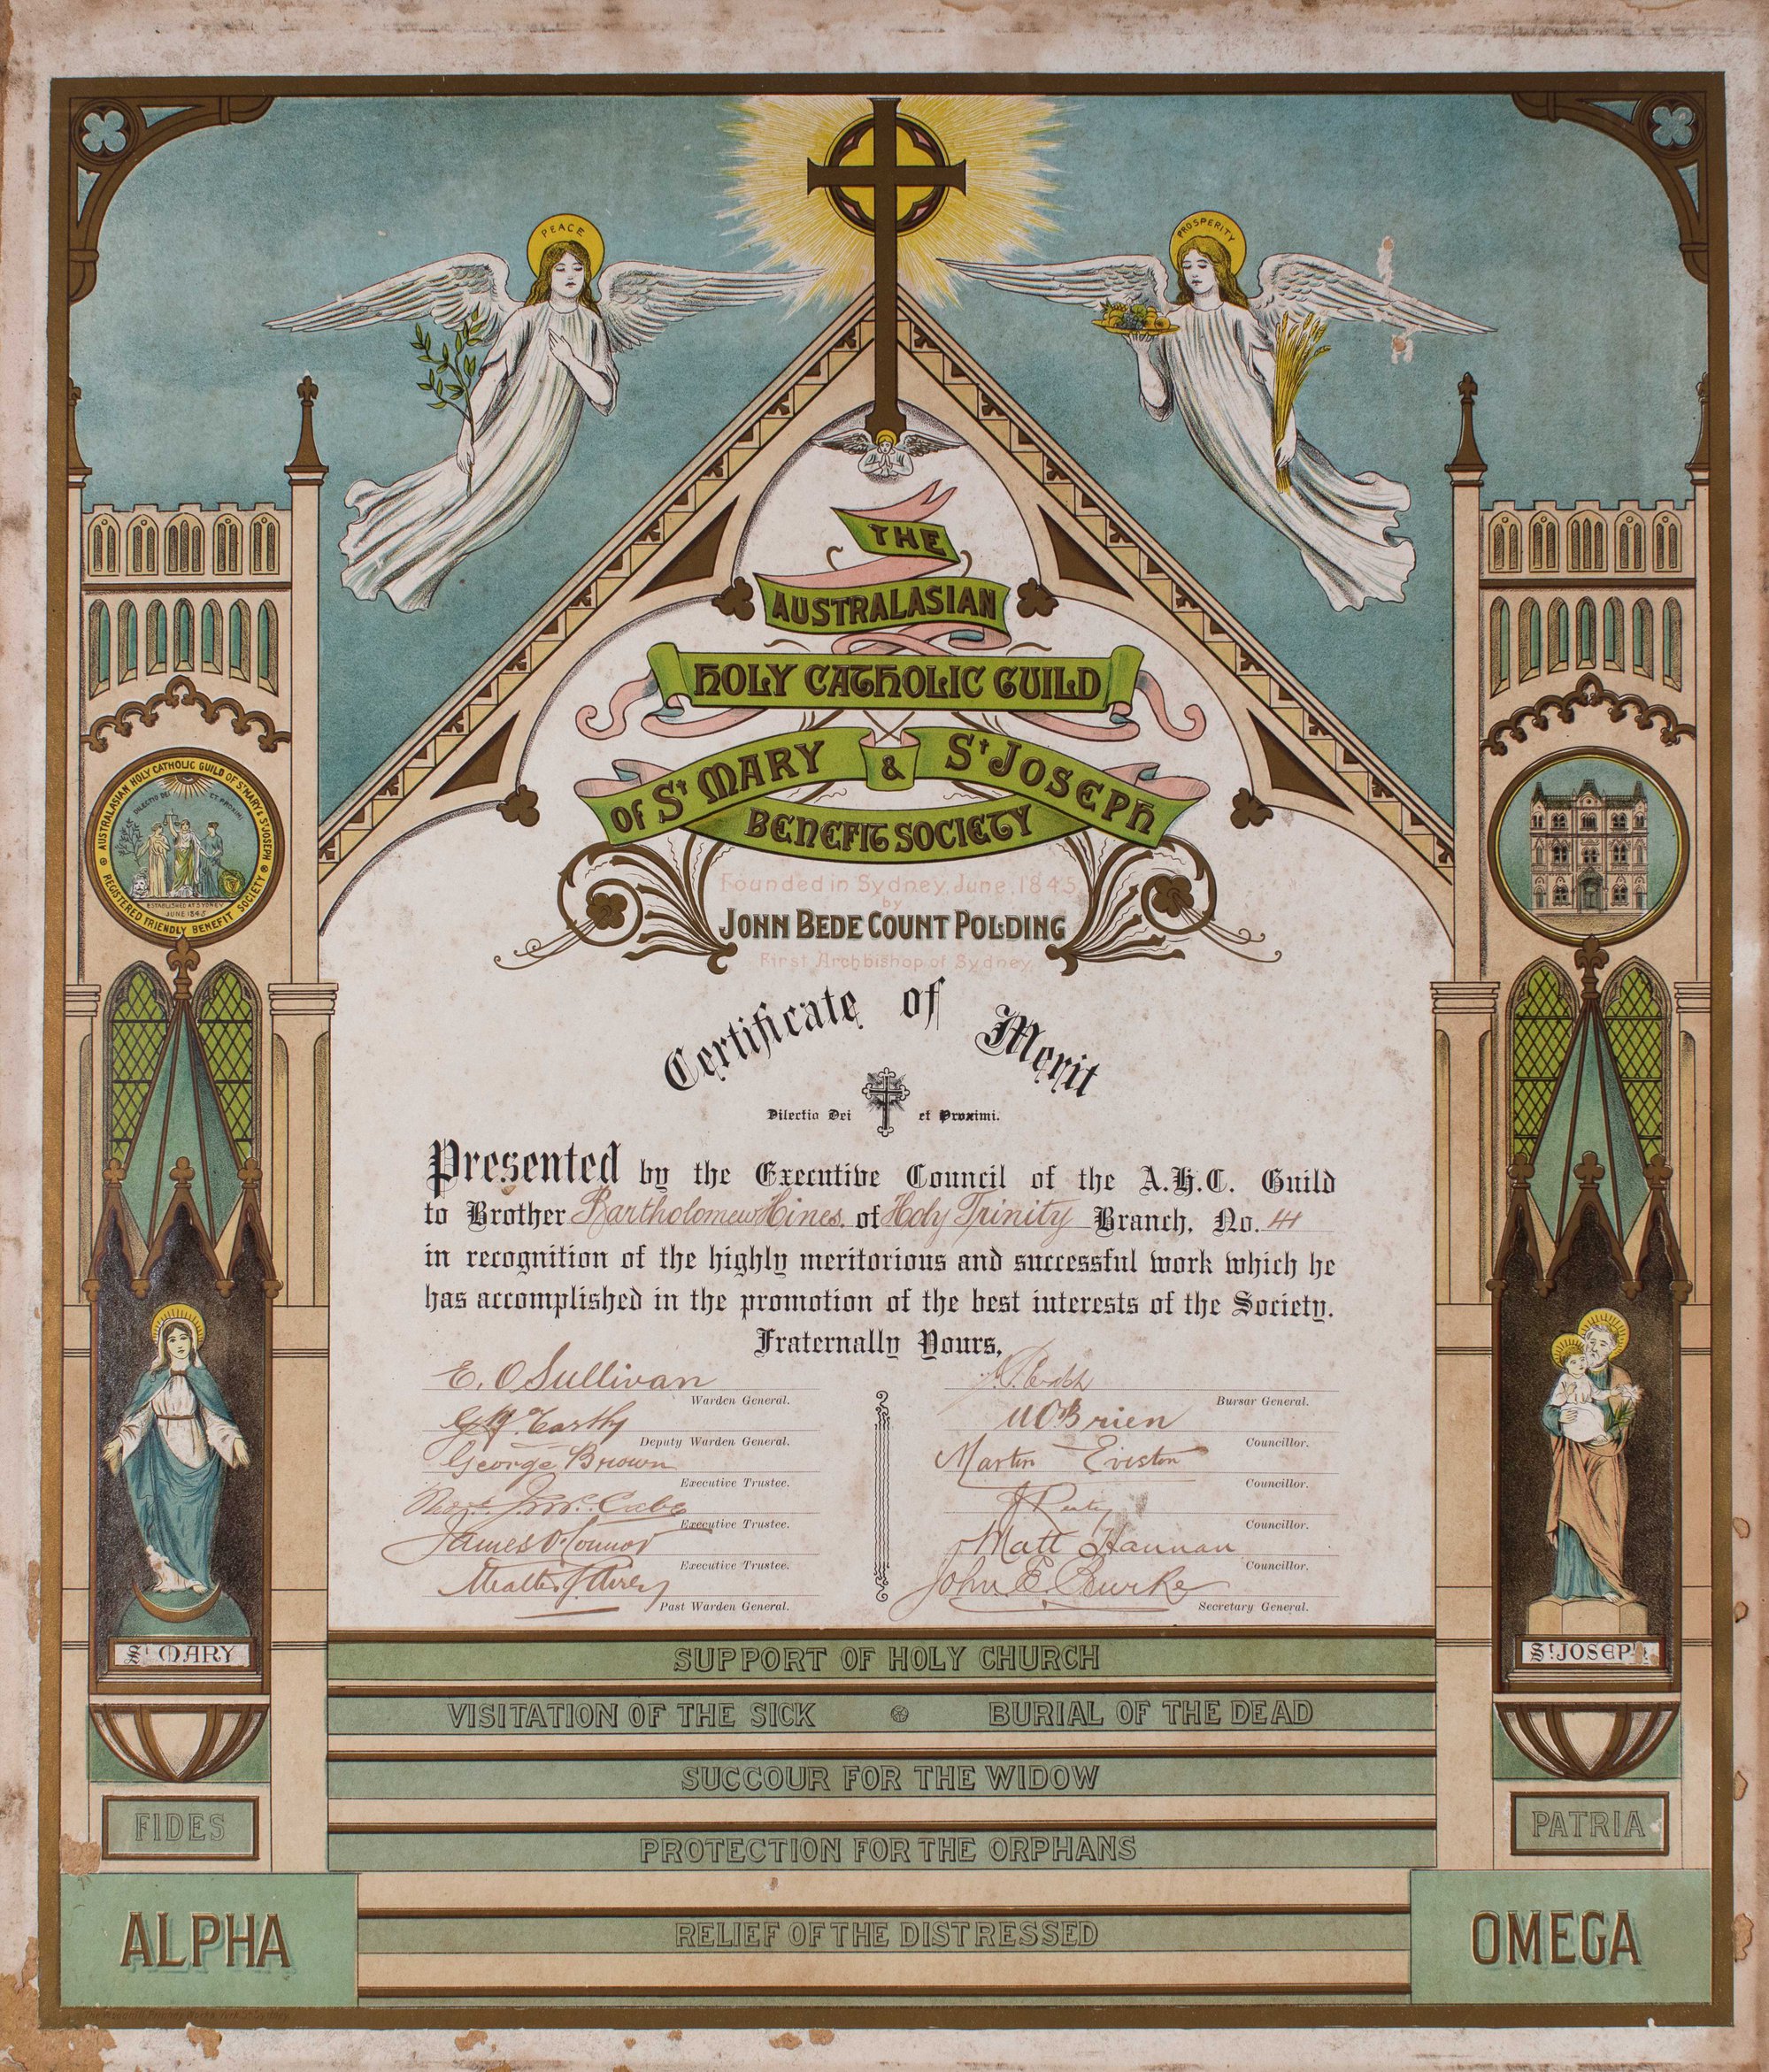 PEACE
PROSPERITY
THE
AUSTRALASIAN
HOLY CATHOLIC GUILD
OF St MARY & St JOSEPH
BENEFIT SOCIETY
AUSTRALASIAN HOLY CATHOLIC GUILD OF St MARY & St JOSEPH
REGISTERED FRIENDLY BENEFIT SOCIETY
DILECTIO DEI ET PROXIMI
ESTABLISHED AT SYDNEY
JUNE 1845
Founded in Sydney, June, 1845,
by
JOHN BEDE COUNT POLDING
First Archbishop of Sydney
Certificate of Merit
Dilectio Dei et Proximi.
Presented by the Executive Council of the A.H.C. Guild
to Brother Bartholomew Hines of Holy Trinity Branch, No.
in recognition of the highly meritorious and successful work which he
has accomplished in the promotion of the best interests of the Society.
Fraternally Yours,
E. O'Sullivan
Warden General.
G McCarthy
Deputy Warden General.
George Brown
Executive Trustee.
J. McCabe
Executive Trustee.
James O'Connor
Executive Trustee.
Past Warden General.
Bursar General.
M O'Brien
Councillor.
Martin Eviston
Councillor.
J
Councillor.
Matt Hannan
Councillor.
John E. Bourke
Secretary General.
St MARY
St JOSEPH
SUPPORT OF HOLY CHURCH
VISITATION OF THE SICK BURIAL OF THE DEAD
SUCCOUR FOR THE WIDOW
PROTECTION FOR THE ORPHANS
RELIEF OF THE DISTRESSED
FIDES
PATRIA
ALPHA
OMEGA